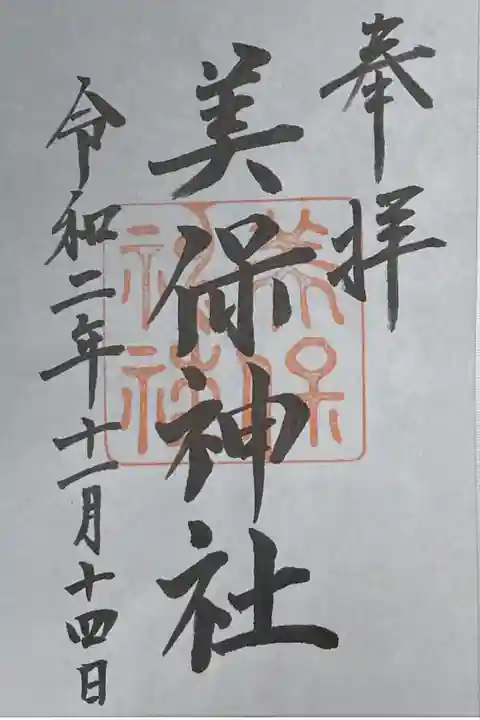 奉拝
美保神社
令和二年十一月十四日
美保
神社